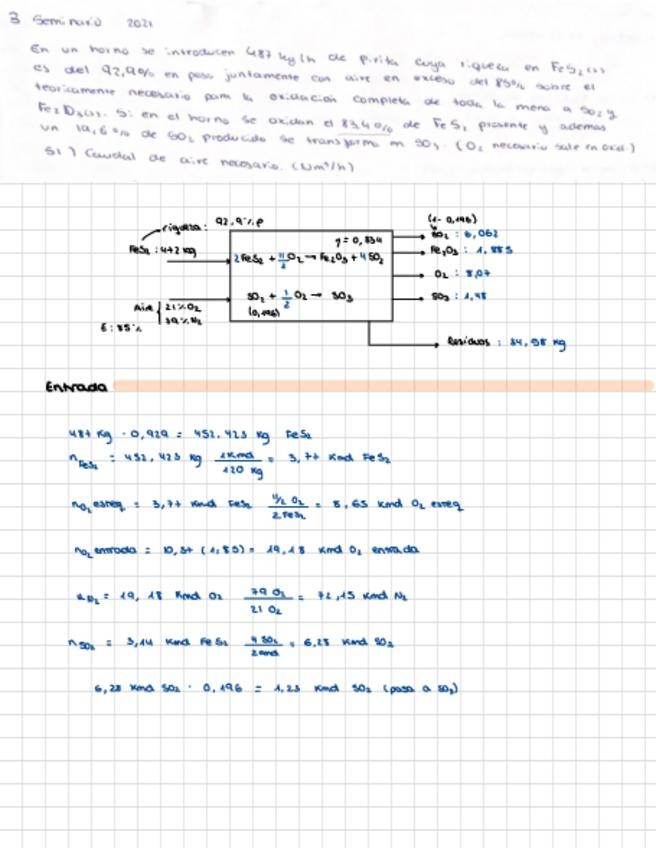 3 Seminario 2021
En un horno se introducen 487 kg/h de pirita cuya riqueza en FeS₂(s)
es del 92,9% en peso juntamente con aire en exceso del 85% sobre el
teoricamente necesario para la oxidación completa de toda la mena a SO₂ y
Fe₂O₃(s). Si en el horno se oxidan el 83,4% de FeS₂ presente y ademas
un 19,6% de SO₂ producido se transforma en SO₃. (O₂ necesario sale en)
Caudal de aire necesario. (Nm³/h)
riqueza: 92,9% p
(1- 0,196)
η = 0,834
SO₂ : 5,062
FeS₂ : 472 kg
2FeS₂ + 11/2 O₂ → Fe₂O₃ + 4SO₂
Fe₂O₃ : 1,885
O₂ : 8,07
Aire 21% O₂
39% N₂
SO₂ + 1/2 O₂ → SO₃
(0,196)
SO₃ : 1,48
E: 85%
Residuos : 84,98 kg
Entrada
487 kg · 0,929 = 452,423 kg FeS₂
n FeS₂ = 452,423 kg 1 Kmol/120 kg = 3,77 Kmol FeS₂
nO₂ esteq = 3,77 Kmol FeS₂ 11/2 O₂/2 FeS₂ = 8,65 Kmol O₂ esteq
nO₂ entrada = 10,37 (1,85) = 19,18 Kmol O₂ entrada
nN₂ = 19,18 Kmol O₂ 79 O₂/21 O₂ = 72,15 Kmol N₂
nSO₂ = 3,14 Kmol FeS₂ 4 SO₂/2 = 6,28 Kmol SO₂
6,28 Kmol SO₂ · 0,196 = 1,23 Kmol SO₂ (pasa a SO₃)